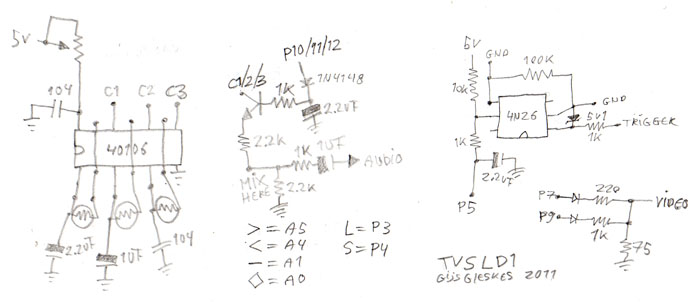 5V
104
C1 C2 C3
40106
2.2uF
1uF
104
P10/11/12
C1/2/3
1N4148
1K
2.2uF
2.2K
1K
1uF
AUDIO
MIX
HERE
2.2K
> = A5
< = A4
— = A1
◇ = A0
L = P3
S = P4
5V
GND
100K
10K
4N26
GND
5V1
1K
TRIGGER
1K
2.2uF
P5
P7
220
VIDEO
P9
1K
75
TVSLD1
GIJS GIESKES 2011